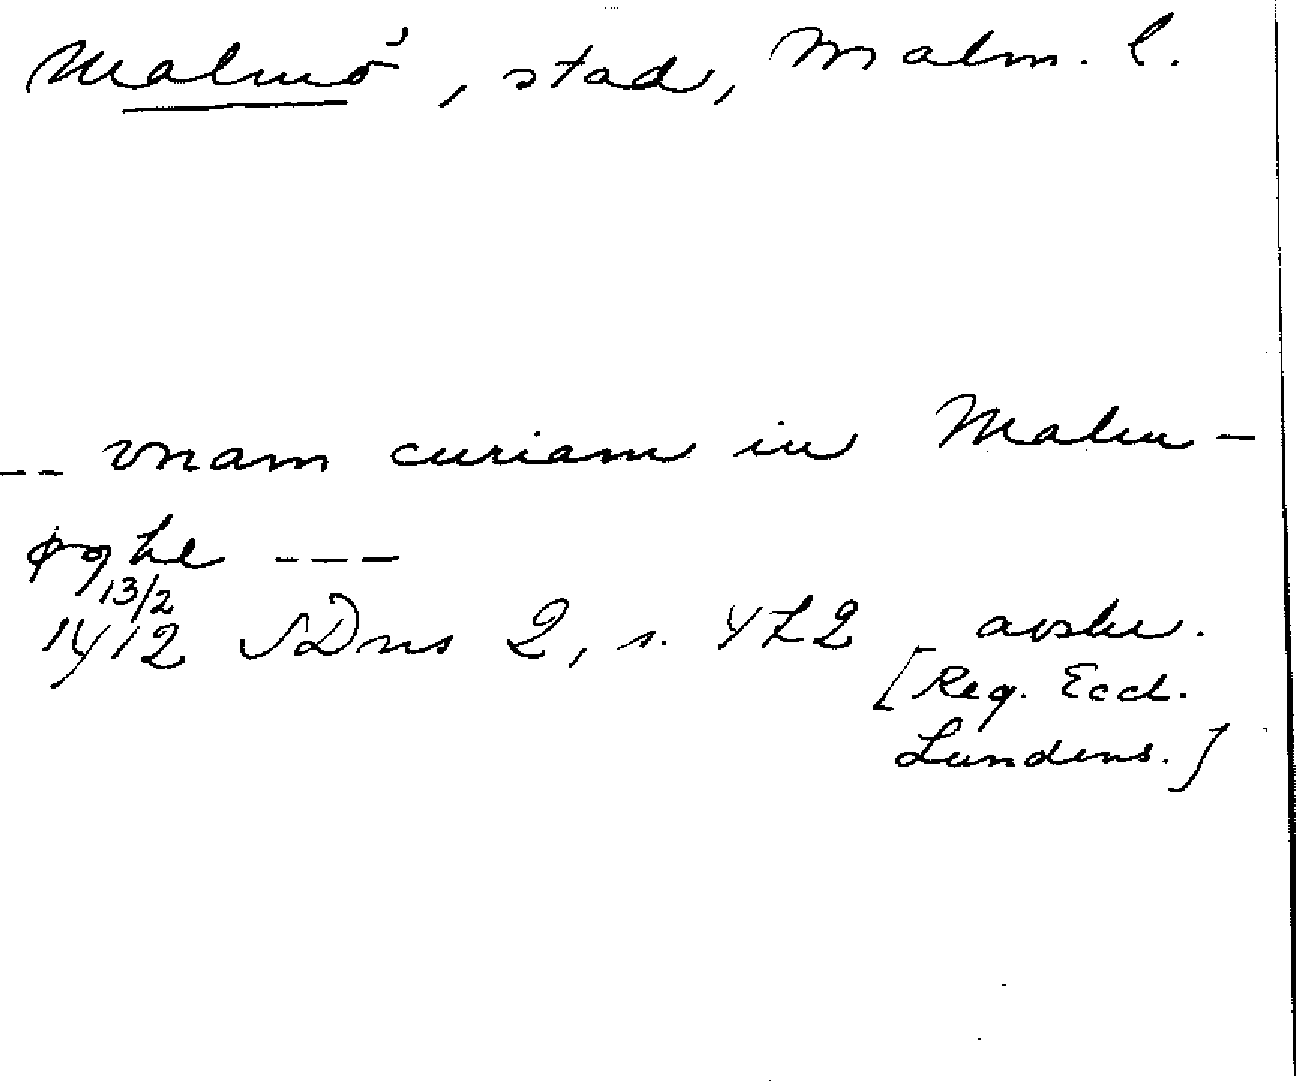 Malmö, stad, Malm. l.
-- vnam curiam in Malm-
øghe ---
13/2
1412 SDns 2, s. 472 avskr.
[Reg. Eccl.
Lundens.]